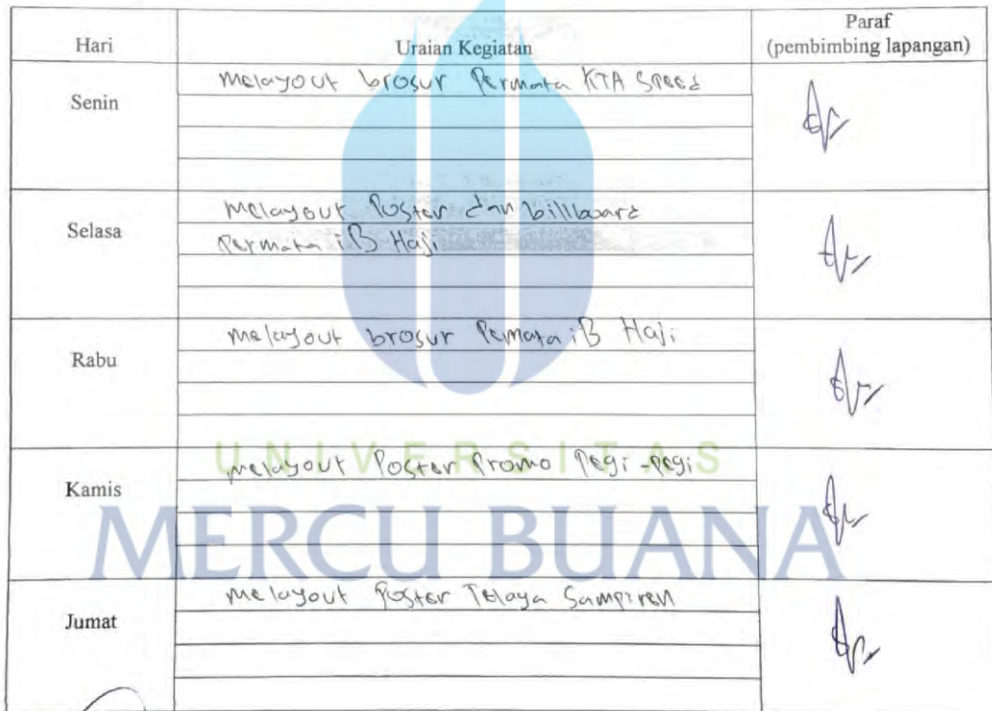 Hari Uraian Kegiatan Paraf
(pembimbing lapangan)
Senin
melayout brosur Permata KTA Speed
Selasa
melayout Poster dan billboard
Permata iB Haji
Rabu
melayout brosur Permata iB Haji
UNIVERSITAS
Kamis
melayout Poster Promo Pegi-Pegi
MERCU BUANA
Jumat
melayout Poster Telaga Sampiren